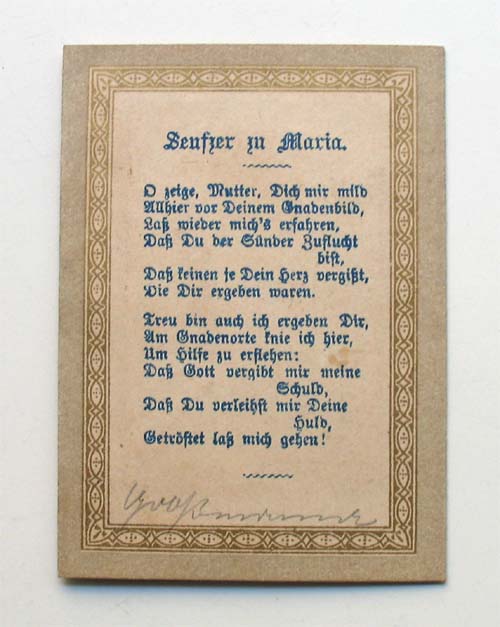 Seufzer zu Maria.
O zeige, Mutter, Dich mir mild
Allhier vor Deinem Gnadenbild,
Laß wieder mich's erfahren,
Daß Du der Sünder Zuflucht
bist,
Daß keinen je Dein Herz vergißt,
Die Dir ergeben waren.
Treu bin auch ich ergeben Dir,
Am Gnadenorte knie ich hier,
Um Hilfe zu erflehen:
Daß Gott vergibt mir meine
Schuld,
Daß Du verleihst mir Deine
Huld,
Getröstet laß mich gehen!